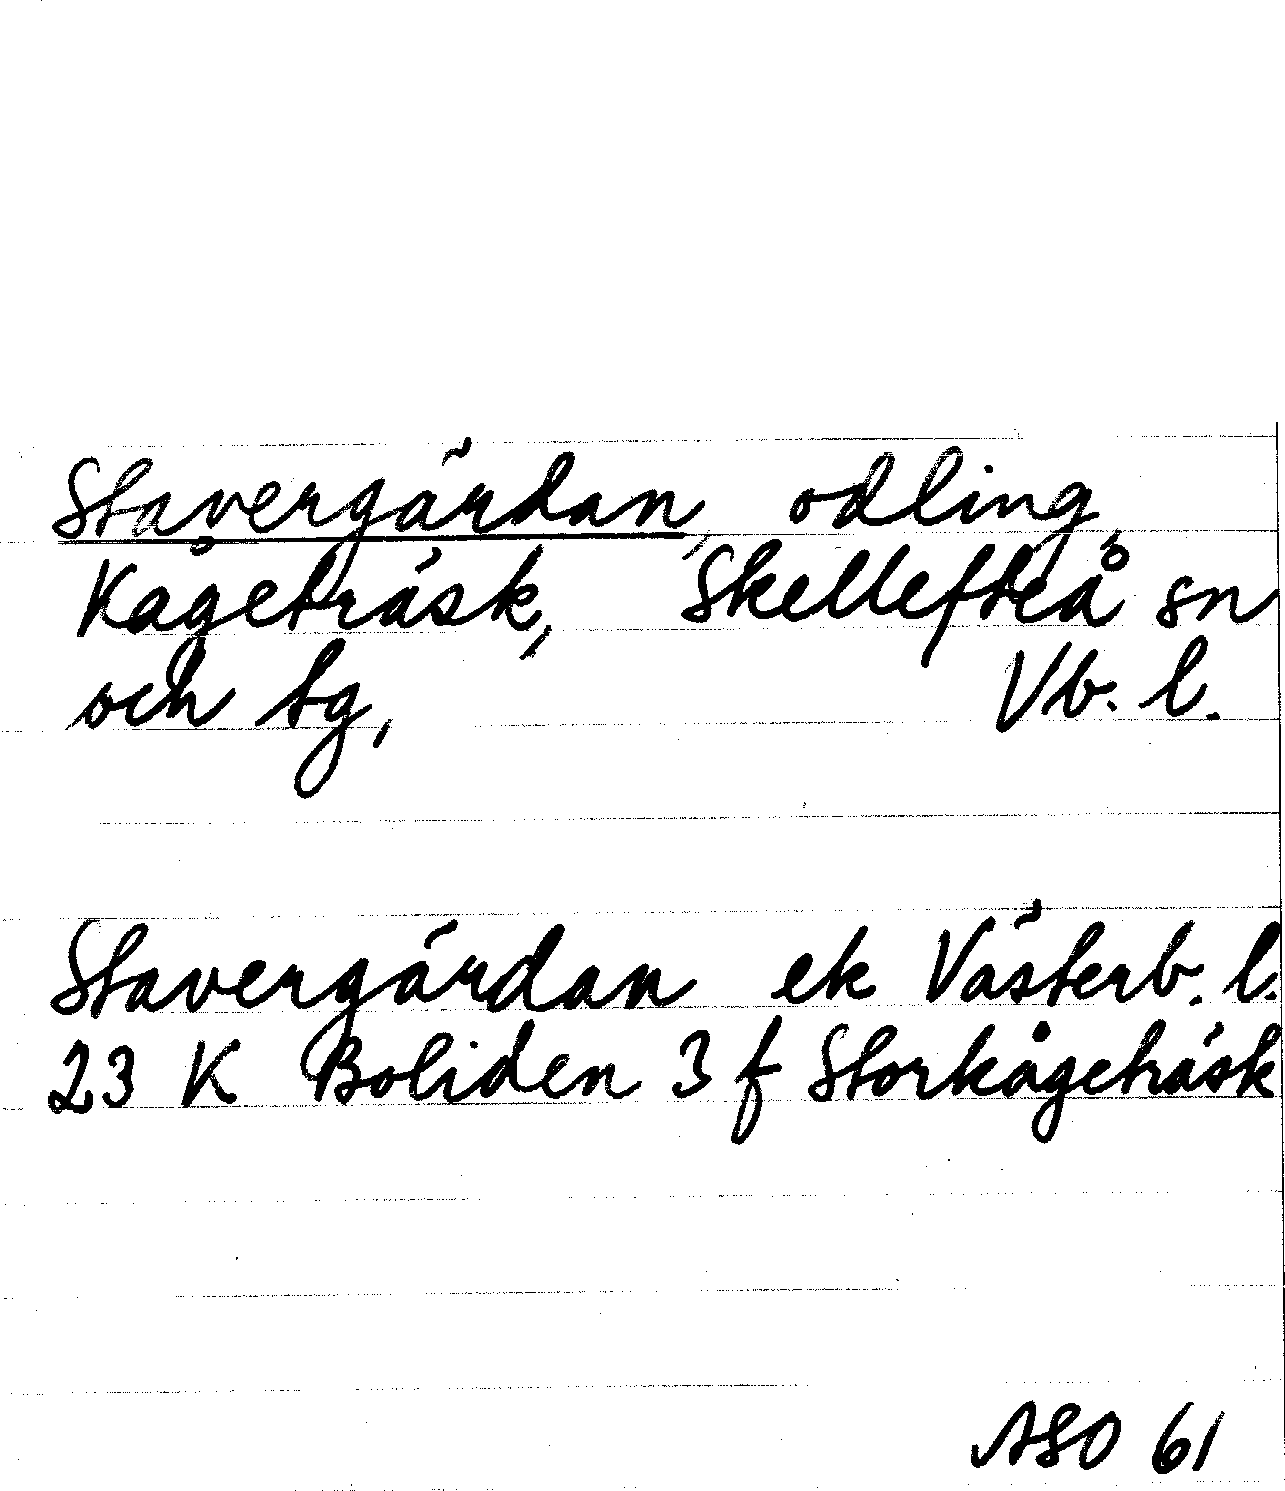 Stavergärdan, odling,
Kågeträsk, Skellefteå sn
och tg, Vb. l.
Stavergärdan ek Västerb. l.
23 K Boliden 3 f Storkågeträsk
ASO 61